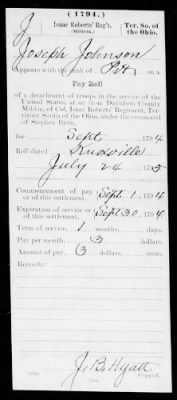 (1794.)
J
Isaac Roberts' Reg't.
(MILITIA.)
Ter. So. of
the Ohio.
Joseph Johnson
Appears with the rank of Pvt on a
Pay Roll
of a detachment of troops in the service of the
United States, at or from Davidson County
Militia, of Col. Isaac Roberts' Regiment, Ter-
ritory South of the Ohio, under the command
of Stephen Byrn.
for Sept, 1794
Roll dated Knoxville
July 24 1795
Commencement of pay or of this settlement. Sept 1, 1794
Expiration of service or of this settlement. Sept 30, 1794
Term of service, 1 months, days
Pay per month, 3 dollars.
Amount of pay, 3 dollars, cents.
Remarks:
J. B. Hyatt
Copyist.